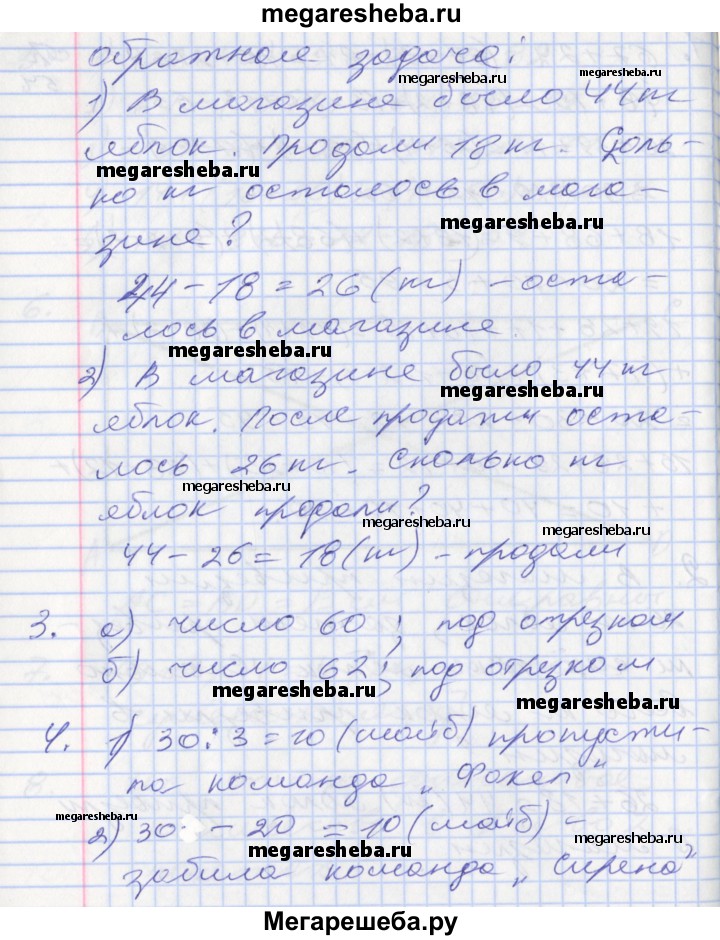 megaresheba.ru
обратная задача:
megaresheba.ru
megaresheba.ru
1) В магазине было 44 кг
яблок. Продали 18 кг. Сколь-
megaresheba.ru
ко кг осталось в мага-
megaresheba.ru
зине?
44 - 18 = 26 (кг) - оста-
лось в магазине.
megaresheba.ru
2) В магазине было 44 кг
megaresheba.ru
яблок. После продажи оста-
лось 26 кг. Сколько кг
megaresheba.ru
яблок продали?
megaresheba.ru
megaresheba.ru
44 - 26 = 18 (кг) - продали
3. а) число 60; под отрезком
б) число 62; под отрезком
megaresheba.ru
4. 1) 30 : 3 = 10 (шайб) пропусти-
megaresheba.ru
ла команда „Факел"
megaresheba.ru
2) 30 - 20 = 10 (шайб) -
megaresheba.ru
megaresheba.ru
забила команда „Сирена"
Мегарешеба.ру